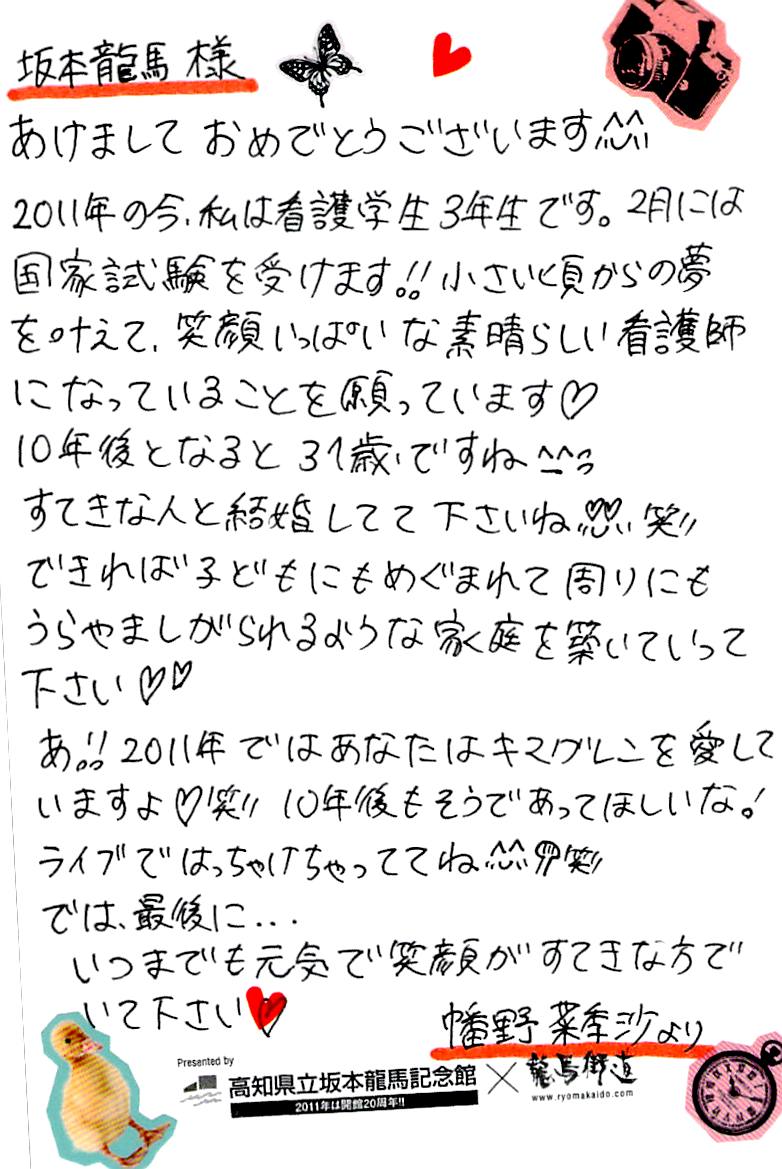 坂本龍馬 様
あけまして おめでとうございます^^
2011年の今、私は看護学生3年生です。2月には
国家試験を受けます!! 小さい頃からの夢
を叶えて、笑顔いっぱいな素晴らしい看護師
になっていることを願っています♡
10年後となると 31歳ですね^^;
すてきな人と結婚してて下さいね 笑!!
できれば子どもにもめぐまれて周りにも
うらやましがられるような家庭を築いていって
下さい♡♡
あ!! 2011年ではあなたはキマグレンを愛して
いますよ♡笑!! 10年後もそうであってほしいな!
ライブではっちゃけちゃっててね^^ 笑!!
では、最後に...
いつまでも元気で笑顔がすてきな方で
いて下さい♡
幡野 菜季沙より
Presented by
高知県立坂本龍馬記念館 × 龍馬街道
2011年は開館20周年!!
www.ryomakaido.com